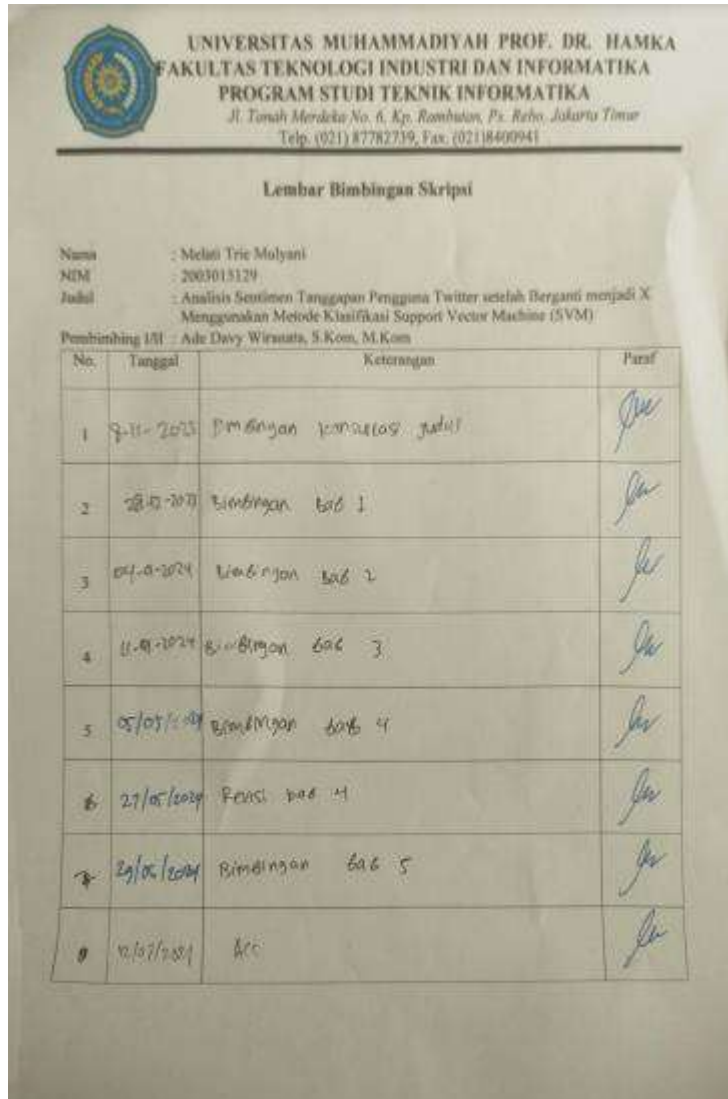 UNIVERSITAS MUHAMMADIYAH PROF. DR. HAMKA
FAKULTAS TEKNOLOGI INDUSTRI DAN INFORMATIKA
PROGRAM STUDI TEKNIK INFORMATIKA
Jl. Tanah Merdeka No. 6, Kp. Rambutan, Ps. Rebo, Jakarta Timur
Telp. (021) 87782739, Fax. (021)8400941
Lembar Bimbingan Skripsi
Nama : Melati Trie Mulyani
NIM : 2003015129
Judul : Analisis Sentimen Tanggapan Pengguna Twitter setelah Berganti menjadi X
Menggunakan Metode Klasifikasi Support Vector Machine (SVM)
Pembimbing I/II : Ade Davy Wiranata, S.Kom, M.Kom
No. Tanggal Keterangan Paraf
1 8-11-2023 judul
2 Bimbingan bab 1
3 04-01-2024 Bimbingan bab 2
4 11-01-2024 Bimbingan bab 3
5 Bimbingan bab 4
6 27/05/2024 Revisi bab 4
Bimbingan bab 5
Acc